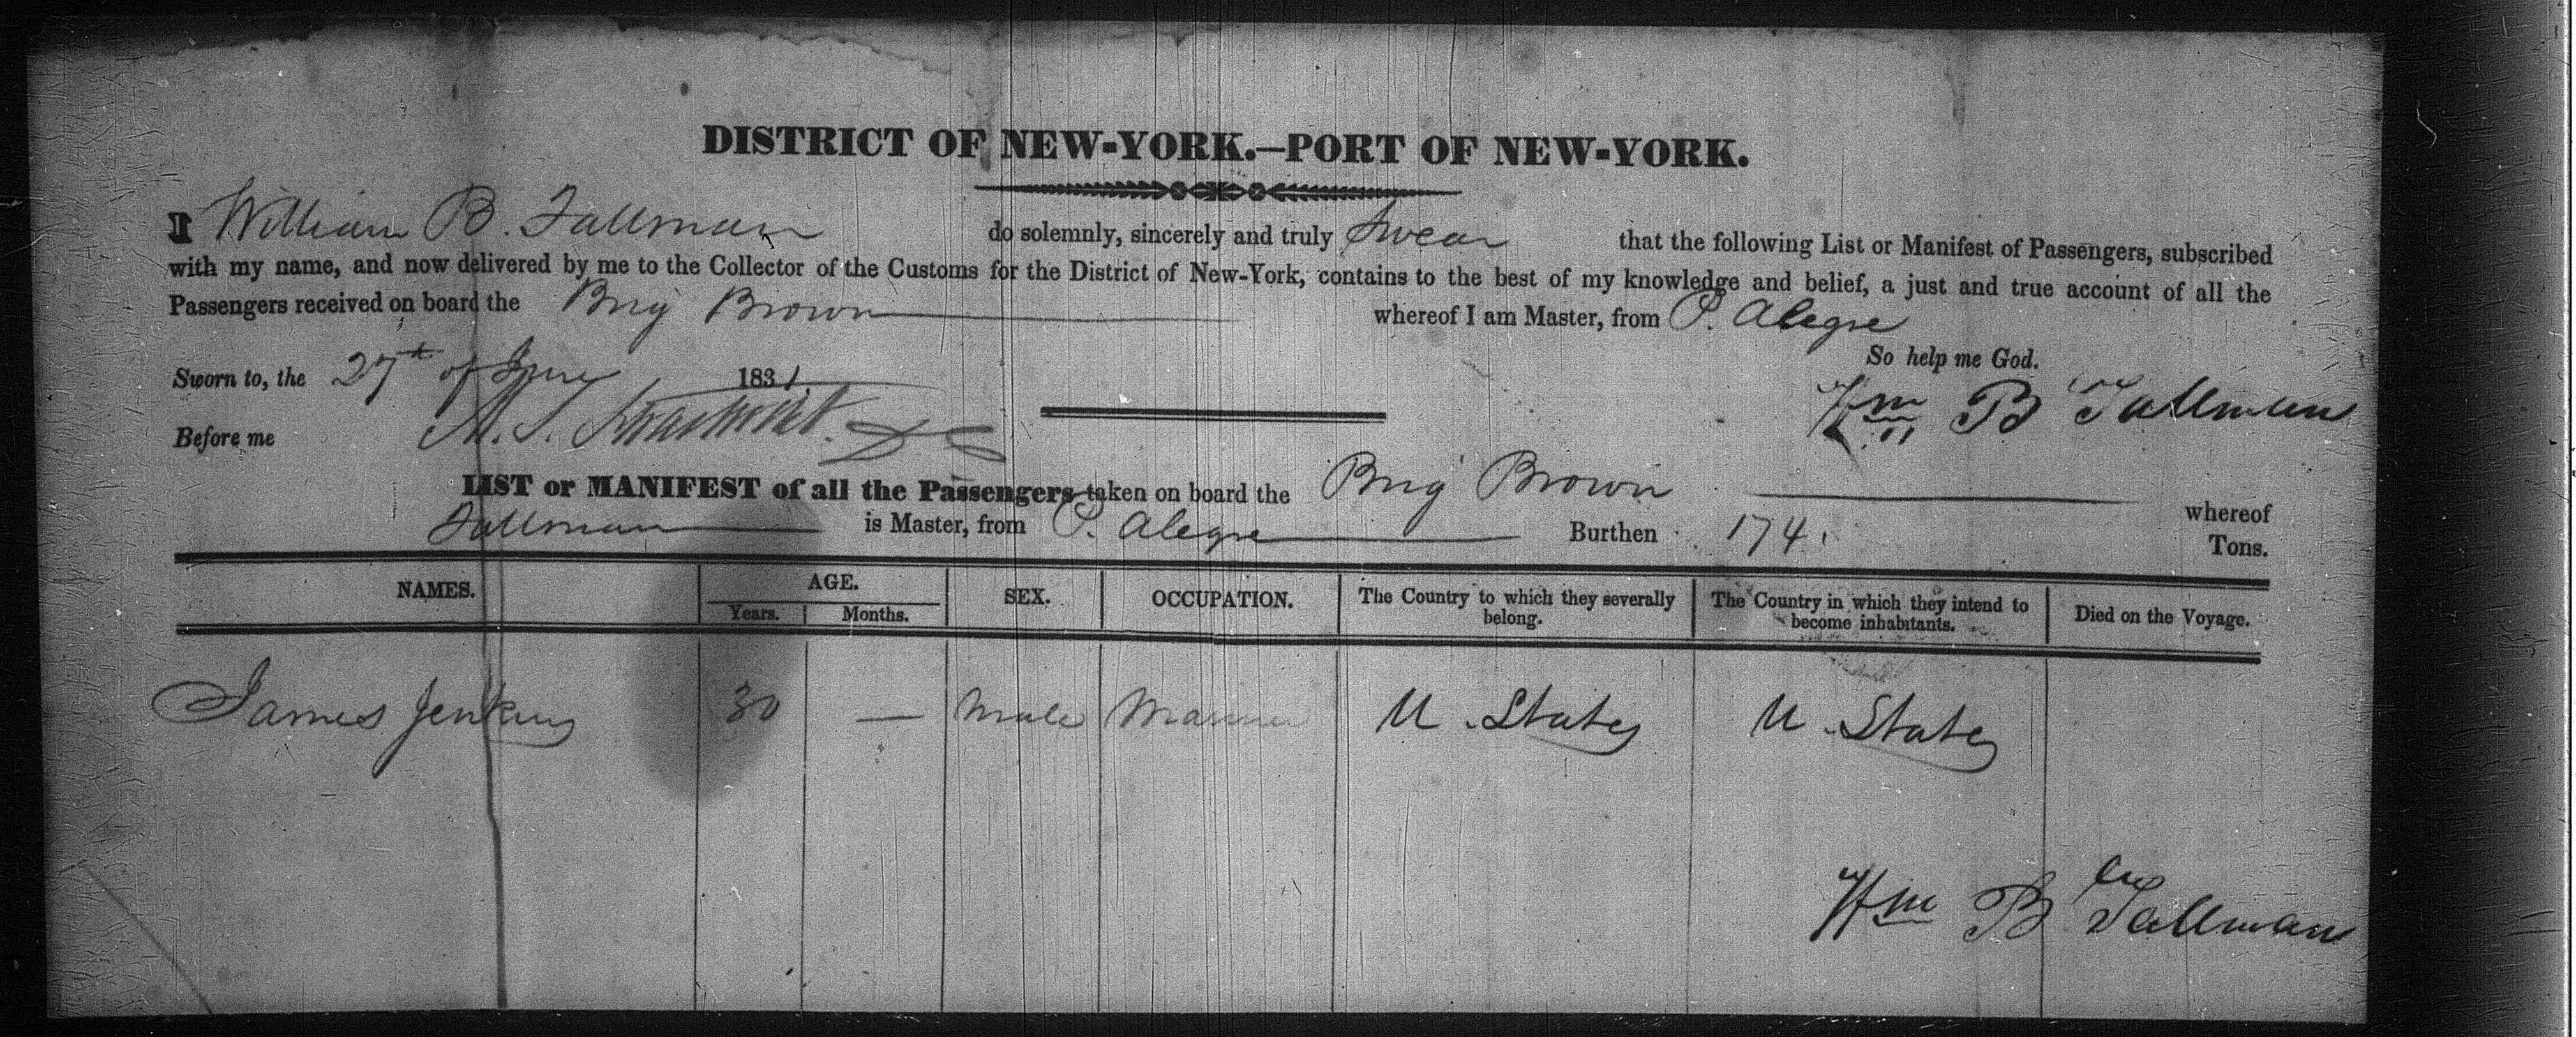 DISTRICT OF NEW-YORK.—PORT OF NEW-YORK.
I William B. Tallman do solemnly, sincerely and truly swear that the following List or Manifest of Passengers, subscribed
with my name, and now delivered by me to the Collector of the Customs for the District of New-York, contains to the best of my knowledge and belief, a just and true account of all the
Passengers received on board the Brig Brown whereof I am Master, from P. Alegre
So help me God.
Sworn to, the 27th of June 1831
Wm B Tallman
Before me
LIST or MANIFEST of all the Passengers taken on board the Brig Brown whereof
Tallman is Master, from P. Alegre Burthen 174. Tons.
NAMES. AGE. Years. Months. SEX. OCCUPATION. The Country to which they severally belong. The Country in which they intend to become inhabitants. Died on the Voyage.
James Jenkins 30 — Male Mariner U. States U. States
Wm B Tallman